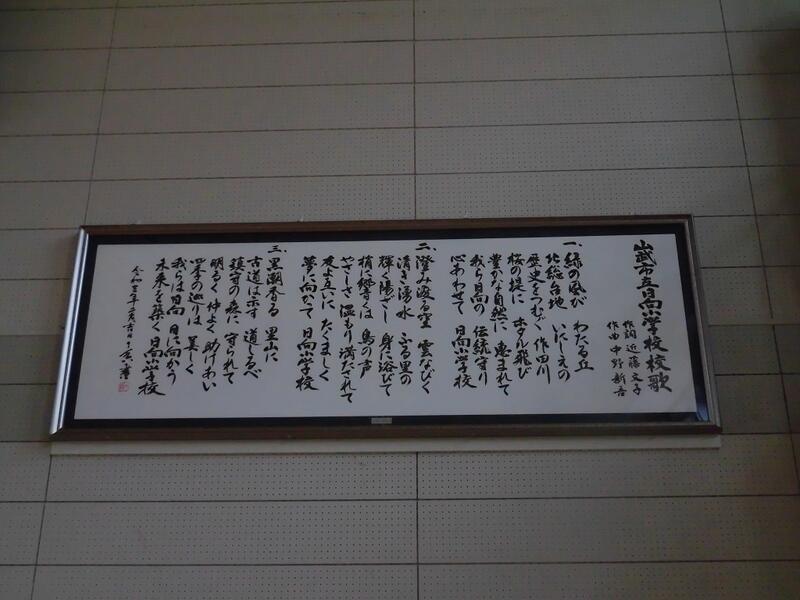 山武市立日向小学校 校歌
作詞 近藤文子
作曲 中野新吾
一、緑の風が わたる丘
北総台地 いにしえの
歴史をつむぐ 作田川
桜の堤に ホタル飛び
豊かな自然に 恵まれて
我ら日向の 伝統守り
心あわせて 日向小学校
二、澄み渡る空 雲なびく
清き湧水 ふる里の
輝く陽ざし 身に浴びて
梢に響くは 鳥の声
やさしさ 温もり 満たされて
友よ互いに たくましく
夢に向かって 日向小学校
三、黒潮香る 里山に
古道は示す 道しるべ
鎮守の森に 守られて
明るく 仲よく 助けあい
四季の巡りは 美しく
我らは日向 日に向かう
未来を築く 日向小学校